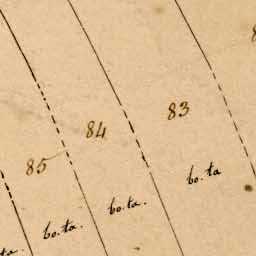 83
84
85
bo.ta
bo.ta.
bo.ta.
ta.